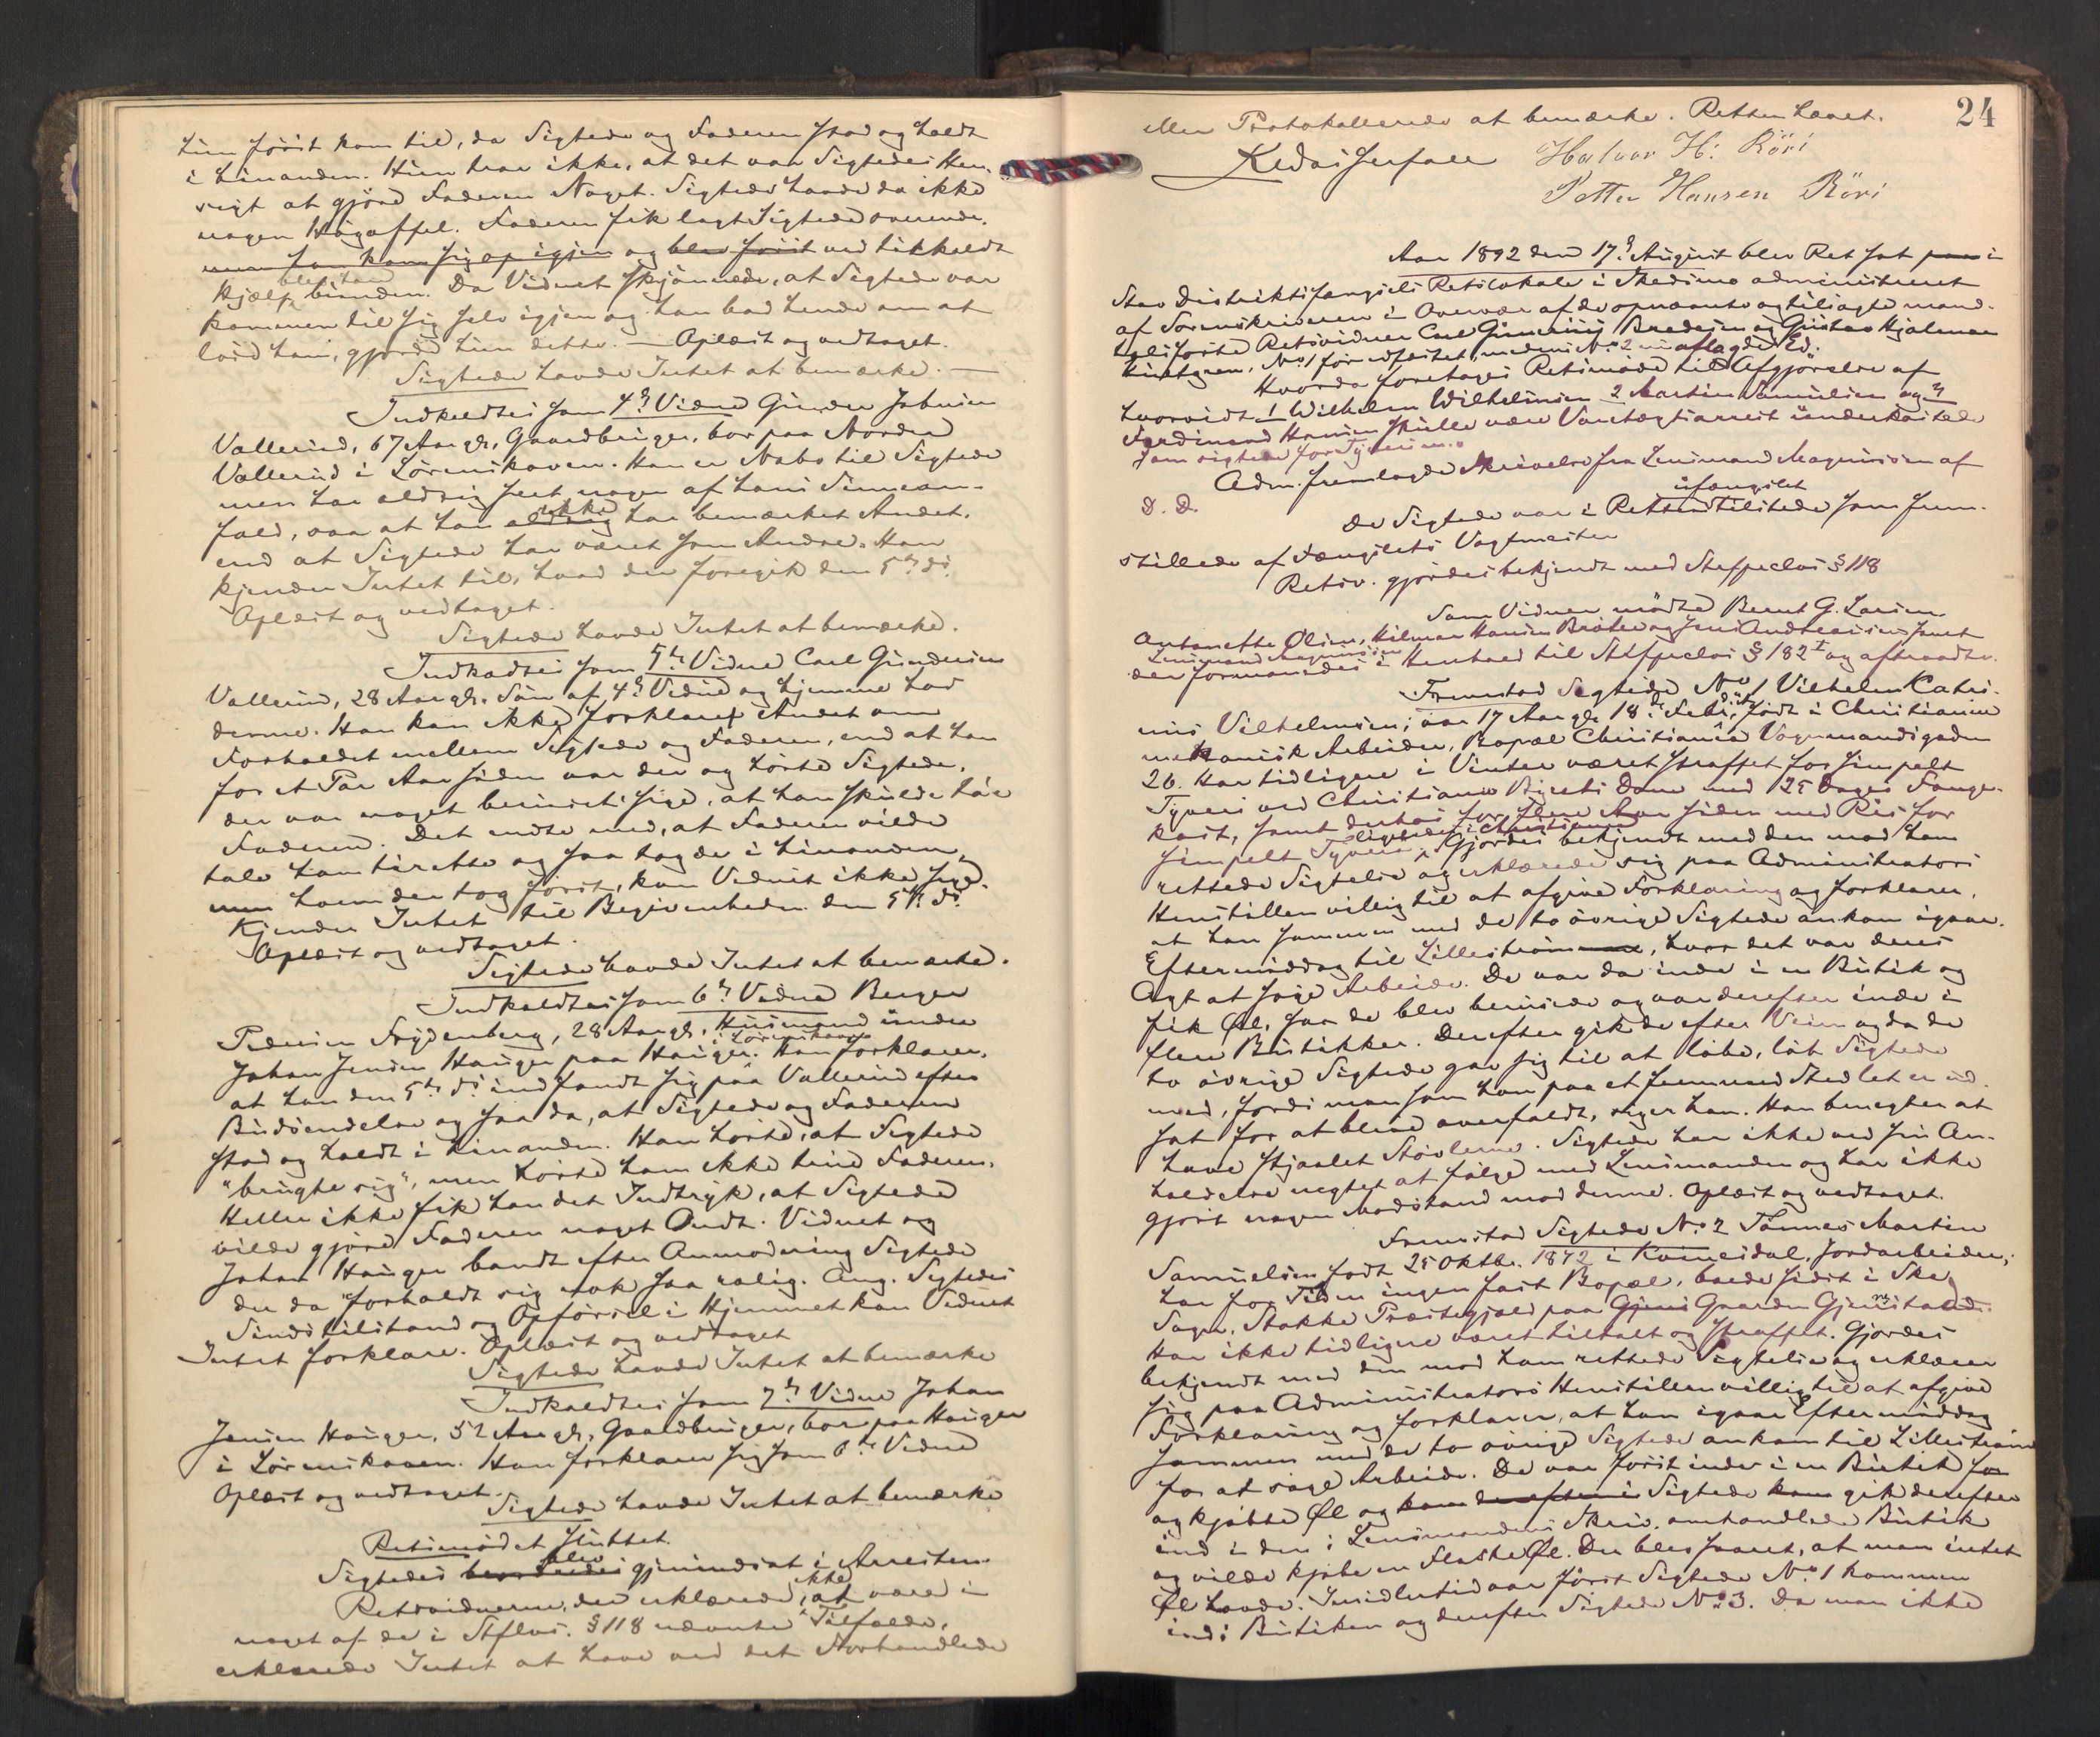 hun først kom til, da Sigtede og Faderen stod og holdt
i hinanden. Hun tror ikke, at det var Sigtedes Hen-
sigt at gjøre Faderen Noget. Sigtede havde da ikke
nogen Fadern fik lagt Sigtede overende,
men han kom sig op igjen og blev først ved tilkaldt
Hjælp blev han bunden. Da Vidnet skjønnede, at Sigtede var
kommen til sig selv igjen og han bad hende om at
løse ham, gjorde hun dette. — Oplæst og vedtaget.
Sigtede havde Intet at bemærke. —
Indkaldtes som 4de Vidne Gunder Johnsen
Vallerud, 67 Aar gl., Gaardbruger, bor paa Nordre
Vallerud i Lørenskoven. Han er Nabo til Sigtede
men har aldrig seet noget af hans Sinnean-
fald, saa at han aldrig ikke har bemærket Andet,
end at Sigtede har været som Andre. Han
kjender Intet til, hvad der foregik den 5te ds.
Oplæst og vedtaget.
Sigtede havde Intet at bemærke.
Indkaldtes som 5te Vidne Carl Gundersen
Vallerud, 28 Aar gl. Søn af 4de Vidne og hjemme hos
denne. Han kan ikke forklare Andet om
Forholdet mellem Sigtede og Faderen, end at han
for et Par Aar siden var der og hørte Sigtede,
der var noget beruset sige, at han skulde tage
Faderen. Det endte med, at Faderen vilde
tale ham tilrette og saa tog de i hinanden,
men hvem der tog først, kan Vidnet ikke sige.
Kjender Intet til Begivenheden den 5te ds.
Oplæst og vedtaget.
Sigtede havde Intet at bemærke.
Indkaldtes som 6te Vidne Berger
Pedersen Frydenberg, 28 Aar gl., Husmand under
Johan Jensen Hauger paa Hauger i Lørenskoven. Han forklarer,
at han den 5te ds. indfandt sig paa Vallerud efter
Budsendelse og saa da, at Sigtede og Faderen
stod og holdt i hinanden. Han hørte, at Sigtede
"brugte sig", men hørte ham ikke true Faderen.
Heller ikke fik han det Indtryk, at Sigtede
vilde gjøre Faderen noget Ondt. Vidnet og
Johan Hauger bandt efter Anmodning Sigtede
der da forholdt sig nok saa rolig. Ang. Sigtedes
Sindstilstand og Opførsel i Hjemmet kan Vidnet
Intet forklare. Oplæst og vedtaget
Sigtede havde Intet at bemærke
Indkaldtes som 7de Vidne Johan
Jensen Hauger, 52 Aar gl., Gaardbruger, bor paa Hauger
i Lørenskoven. Han forklarer sig som 6te Vidne
Oplæst og vedtaget.
Sigtede havde Intet at bemærke
Retsmødet sluttet.
Sigtedes blev gjenindsat i Arresten.
Retsvidnerne, der erklærede, ikke at være i
noget af de i Stflov. § 118 nævnte Tilfælde,
erklærede Intet at have ved det Forhandlede
24
eller Protokollerede at bemærke. Retten hævet.
Halvor H: Röri
Petter Hansen Röri
Aar 1892 den 17de August blev Ret sat paa i
Stav Distriktsfængsels Retslokale i Skedsmo administreret
af Sorenskriveren i Overvær af de opnævnte og tilsagte mand-
talsførte Retsvidner Carl Bredesen og Gustav Hjalmar
No 1 før edfæstet, medens No 2 nu aflagde Ed.
Hvorda foretoges Retsmøde til Afgjørelse af
hvorvidt 1 Wilhelm Wilhelmsen 2 Martin Samuelsen og 3
Ferdinand Hansen skulle være Varetægtsarrest underkastede
som sigtede for Tyveri.
Adm. fremlagde Skrivelse fra Lensmand Magnussen af
D. D.
De Sigtede var i Retten ufængslet tilstede som frem-
stillede af Fængslets Vagtmester
Retsv. gjordes bekjendt med Stafpeclov § 118
Som Vidner mødte Bernt G. Larsen
Antonette Olsen, Hilmar Hansen Bråten og Jens Andreassen samt
Lensmand Magnussen
der formanedes i Henhold til Stfpeclov § 182 I og aftraadte.
Fremstod Sigtede No 1 Vilhelm Catri-
nus Vilhelmsen, var 17 Aar gl. 18de Febr., født i Christiania
mekanisk Arbeider, Bopæl Christiania Vognmandsgaden
26. Har tidligere i Vinter været straffet for simpelt
Tyveri ved Christiania Byrets Dom med 25 Dages Fange-
kost, samt derhos for flere Aar siden med Ris for
simpelt Tyveri ligeledes i Christiania. Gjordes bekjendt med den mod ham
rettede Sigtelse og erklærede sig paa Administrators
Henstillen villig til at afgive Forklaring og forklarer,
at han sammen med de to øvrige Sigtede ankom igaar
Eftermiddag til Lillestrøm, hvor det var deres
Agt at søge Arbeide. De var da inde i en Butik og
fik Øl, saa de blev berusede og var derefter inde i
flere Butikker. Derefter gik de efter Veien og da de
to øvrige Sigtede gav sig til at løbe, løb Sigtede
med, fordi man som han paa et fremmed Sted let er ud-
sat for at blive overfaldt, siger han. Han benegter at
have stjaalet Støvlerne. Sigtede har ikke ved sin An-
holdelse negtet at følge med Lensmanden og har ikke
gjort nogen Modstand mod denne. Oplæst og vedtaget.
Fremstod Sigtede No 2 Tønnes Martin
Samuelsen født 25 Oktbr. 1872 i Jordarbeider,
har for Tiden ingen fast Bopæl, boede sidst i
Sogn, Stokke Præstegjæld paa Gaarden
Har ikke tidligere været tiltalt og straffet. Gjordes
bekjendt med den mod ham rettede Sigtelse og erklærer
sig paa Administrators Henstillen villig til at afgive
Forklaring og forklarer, at han igaar Eftermiddag
sammen med de to øvrige Sigtede ankom til Lillestrøm
for at søge Arbeide. De var først inde i en Butik for
og kjøbte Øl og kom derefter i Sigtede kom gik derefter
ind i den i Lensmandens Skriv. omhandlede Butik
og vilde kjøbe en Flaske Øl. Der blev svaret, at man intet
Øl havde. Imidlertid var først Sigtede No 1 kommen
ind i Butiken og derefter Sigtede No 3. Da man ikke